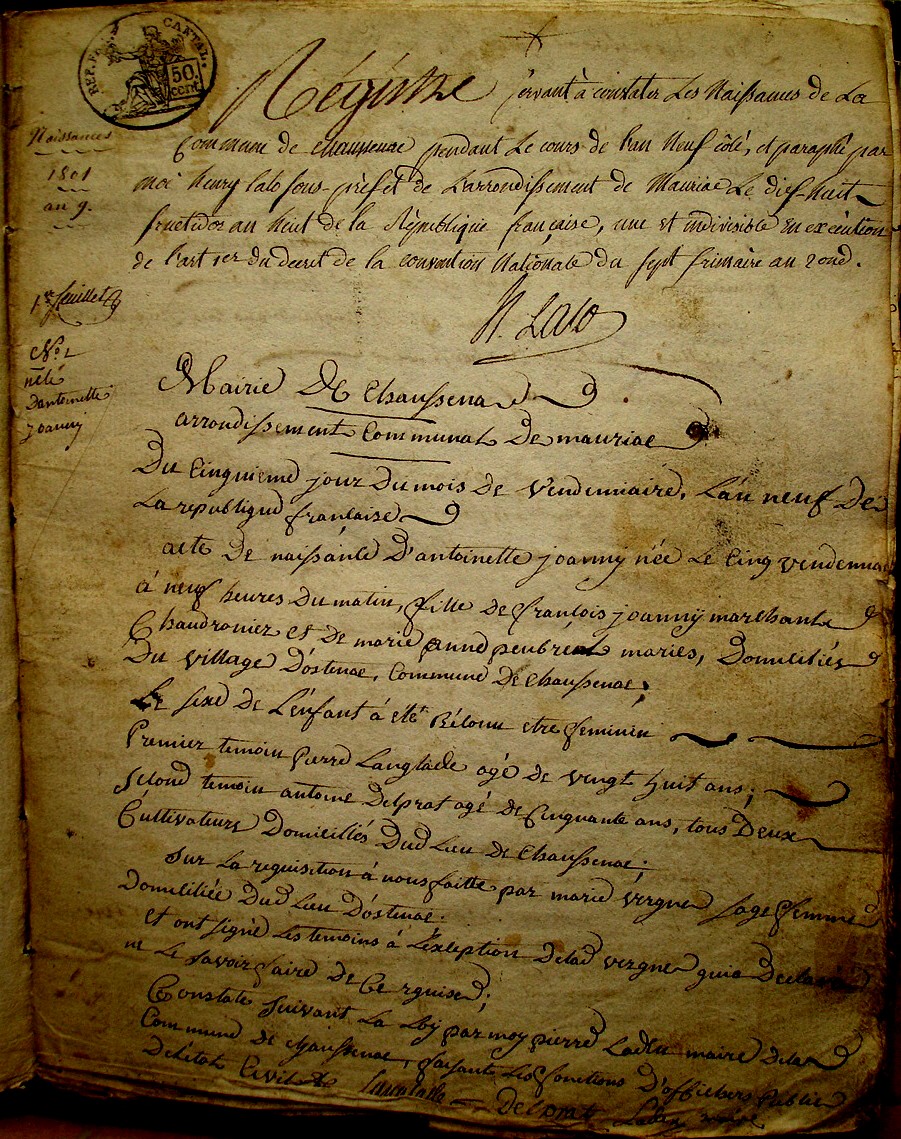 REP. FRA. CANTAL.
50.
cent.
Régistre servant à constater Les Naissances de La
Commune de chaussenac pendant Le cours de l'an Neuf côté, et paraphé par
moi henry Lalo sous-prefet de L'arrondissement de Mauriac Le dix-huit
fructidor an huit de la République française, une et indivisible En exécution
de l'art 1er du decret de la convention Nationale du sept frimaire an 2ond.
H. Lalo
Naissances
1801
an 9.
1er feuillet
No. 1
néé
Dantoinette
joanny
Mairie De Chaussenac
arrondissement Communal De mauriac
Du Cinquieme jour Du mois de Vendemiaire, L'an neuf de
La republique francaise
acte De naissance D'antoinette joanny née Le Cinq vendemiaire
à neuf heures Du matin, fille de francois joanny marchant
Chaudronier et de marie anne peubrent mariés, Domiciliés
Du village D'ostenac, Commune De Chaussenac;
Le sexe de L'enfant à été Réconu etre feminin
Premier temoin pierre Langlade agé de vingt huit ans;
second temoin antoine Delprat agé de Cinquante ans, tous Deux
Cultivateurs Domicilliés Dud Lieu de Chaussenac;
sur La requisition à nous faitte par marie vergne sage femme
Domiciliée Dud Lieu D'ostenac.
et ont signé Les temoins à L'exception Delad vergne qui a Declaré
ne Le savoir faire de Ce rquise;
Constaté suivant La Loy par moy pierre maire Delad
Commune de chaussenac, faisant Les fonctions D'officier Public
De L'etat Civil Langlade Delprat maire